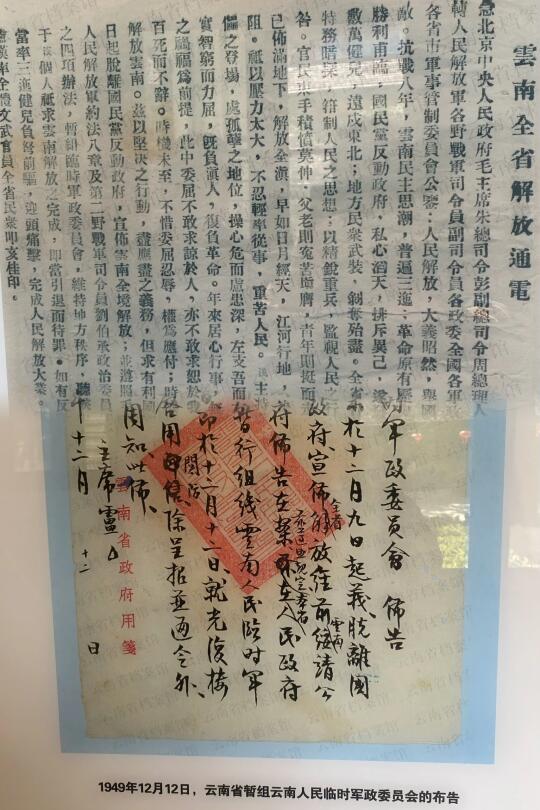 雲南全省解放通電
急北京中央人民政府毛主席朱總司令彭副總司令周總理人
轉人民解放軍各野戰軍司令員副司令員各政委全國各軍政
各省市軍事管制委員會公鑒：人民解放，大義昭然，舉國
敵。抗戰八年，雲南民主思潮，普遍三迤；革命原有歷
勝利甫臨，國民黨反動政府，私心滔天，排斥異己，
數萬健兒，遠戍東北；地方民衆武裝，剝奪殆盡。全省
特務暗探，箝制人民之思想；以精銳重兵，監視人民之
咎。官民束手積憤莫伸。父老則寃苦啣膺，青年則挺而
已佈滿地下，解放全滇，早如日月經天，江河行地，
阻。祇以壓力太大，不忍輕率從事，重苦人民。漢主
儡之登場，處孤孽之地位，操心危而慮患深，左支吾而
實智窮而力屈，既負滇人，復負革命。年來居心行事，
之禍福爲前提，此中委屈不敢求諒於人，亦不敢求恕於
百死而不辭。時機未至，不惜委屈忍辱，權爲應付；時
解放雲南。茲以堅決之行動，盡應盡之義務，但求有利
日起脫離國民黨反動政府，宣佈雲南全境解放；並遵照
人民解放軍約法八章及第二野戰軍司令員劉伯承政治委員
之四項辦法，暫組臨時軍政委員會，維持地方秩序，聽
于漢個人祇求雲南解放之完成，即當引退而待罪。如有反
當率三迤健兒負弩前驅，迎頭痛擊，完成人民解放大業。
盧漢率全體文武官員全省民衆叩亥佳印。
軍政委員會 佈告
於十二月九日起義脱離國
政府宣佈全省解放經前綏靖公
府佈告在案 在人民政府
暫行組織雲南人民臨时軍
即於十二月十二日就光復楼
啟用關防除呈报並通令外、
周知此佈、
主席盧
十二月 十二 日
雲南省政府用箋
1949年12月12日，云南省暂组云南人民临时军政委员会的布告